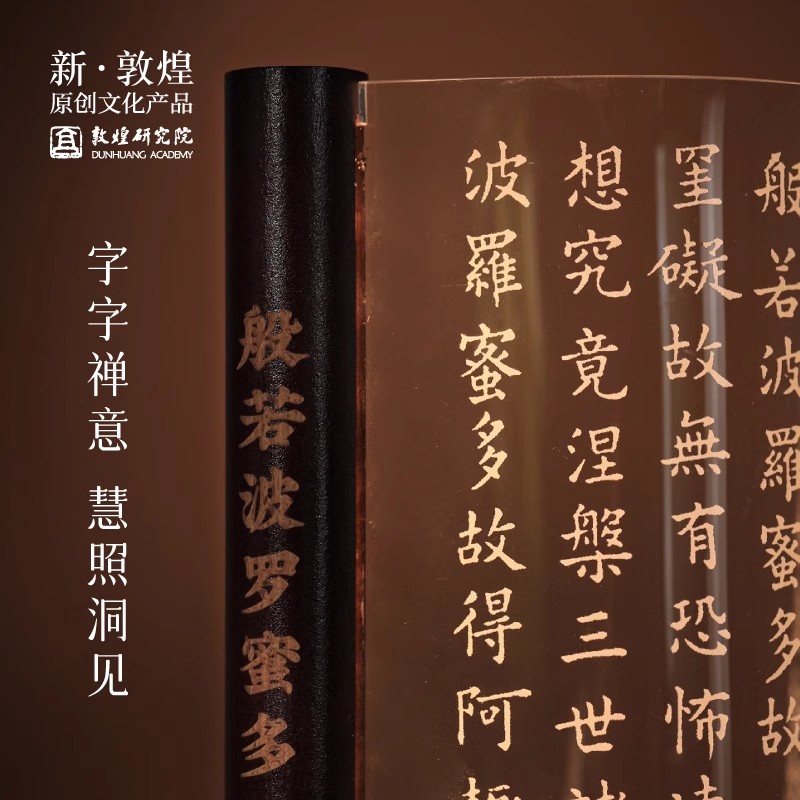 新·敦煌
原创文化产品
敦煌研究院
DUNHUANG ACADEMY
字字禅意 慧照洞见
般若波罗蜜多
般若波羅蜜多故
罣礙故無有恐怖遠
想究竟涅槃三世諸
波羅蜜多故得阿